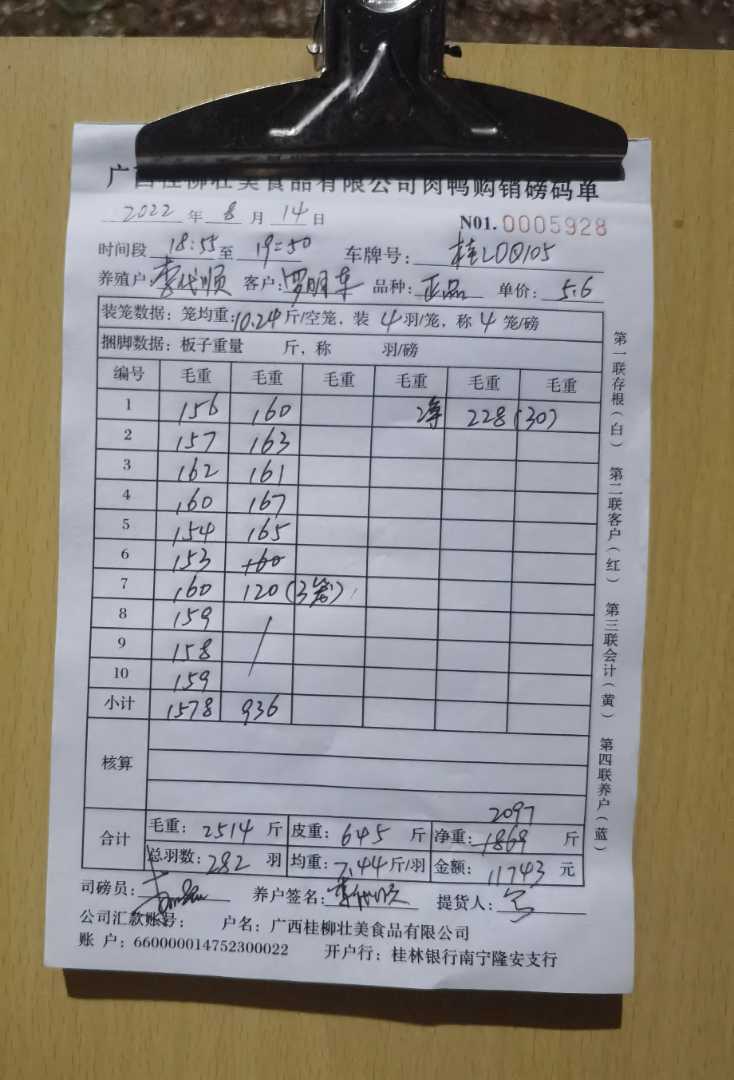 广西桂柳壮美食品有限公司肉鸭购销磅码单
2022 年 8 月 14 日 N01. 0005928
时间段 18:55 至 19:50 车牌号: 桂LDQ105
养殖户: 李代顺 客户: 罗明东 品种: 正品 单价: 5.6
装笼数据: 笼均重: 10.24 斤/空笼, 装 4 羽/笼, 称 4 笼/磅
捆脚数据: 板子重量 斤, 称 羽/磅
编号 毛重 毛重 毛重 毛重 毛重 毛重
1 156 160 2等 228 (30)
2 157 163
3 162 161
4 160 167
5 154 165
6 153 160
7 160 120 (3笼)
8 159
9 158
10 159
小计 1578 936
核算
2097
合计 毛重: 2514 斤 皮重: 645 斤 净重: 1869 斤
总羽数: 282 羽 均重: 7.44 斤/羽 金额: 11743 元
司磅员: 养户签名: 李代顺 提货人:
公司汇款账号: 户名: 广西桂柳壮美食品有限公司
账 户: 660000014752300022 开户行: 桂林银行南宁隆安支行
第一联存根(白) 第二联客户(红) 第三联会计(黄) 第四联养户(蓝)